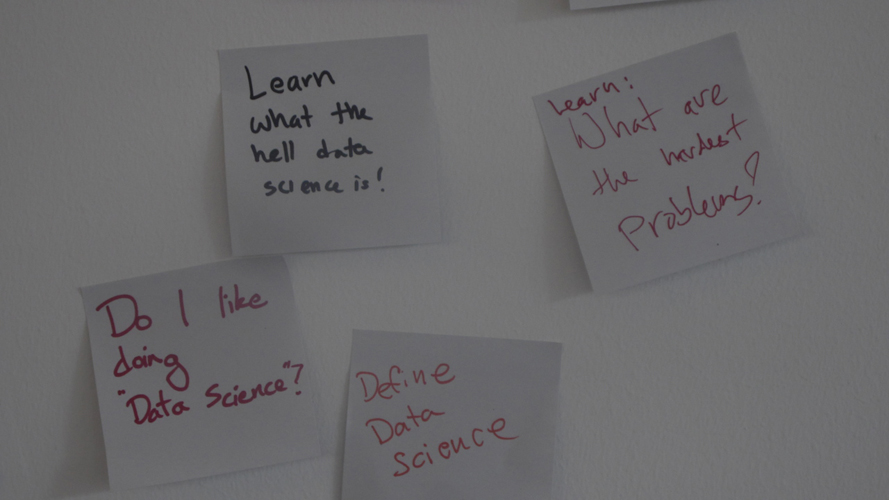 Learn
what the
hell data
science is!
Learn:
What are
the hardest
Problems?
Do I like
doing
"Data Science"?
Define
Data
Science